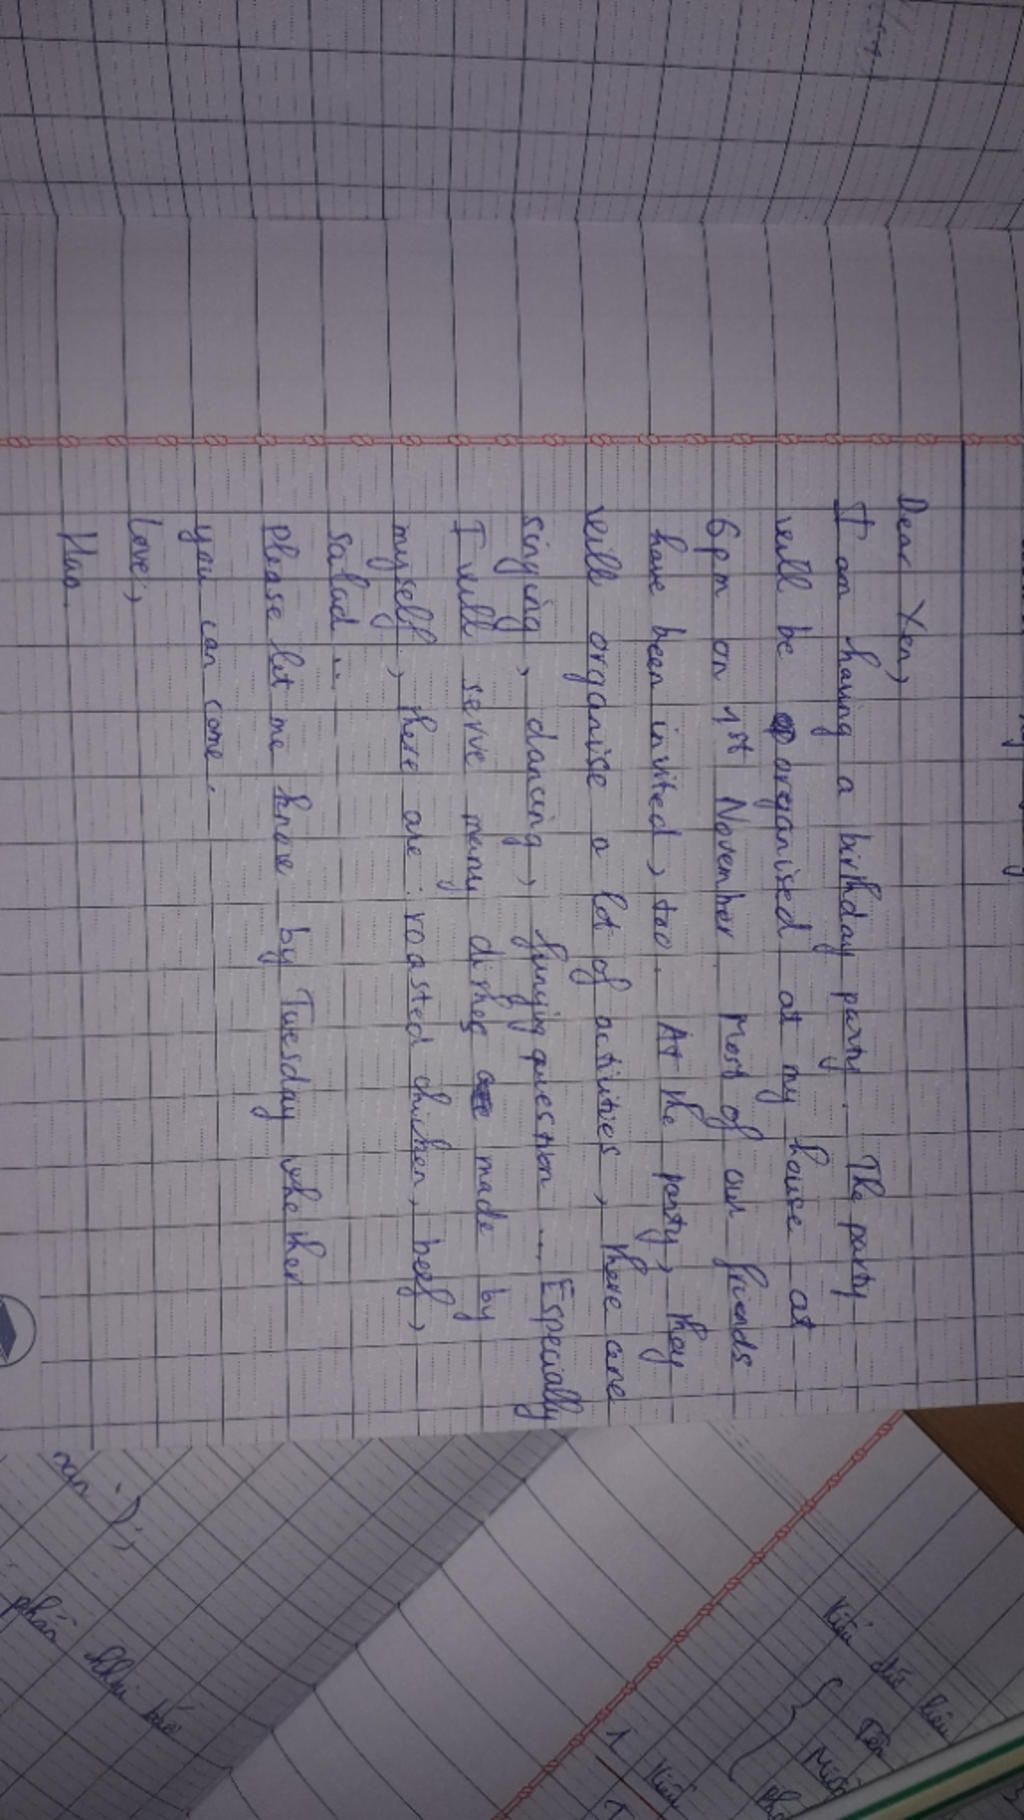 Dear Yen,
I am having a birthday party. The party
will be organised at my house at
6pm on 1st November. Most of our friends
have been invited, too. At the party, they
will organise a lot of activities, there are
singing, dancing, funying question .... Especially
I will serve many dishes made by
myself, there are: roasted chicken, beef,
salad ...
Please let me know by Tuesday whether
you can come.
Love,
Han
Kiểu dữ liệu
Tên
1 Kiểu
phần khai báo